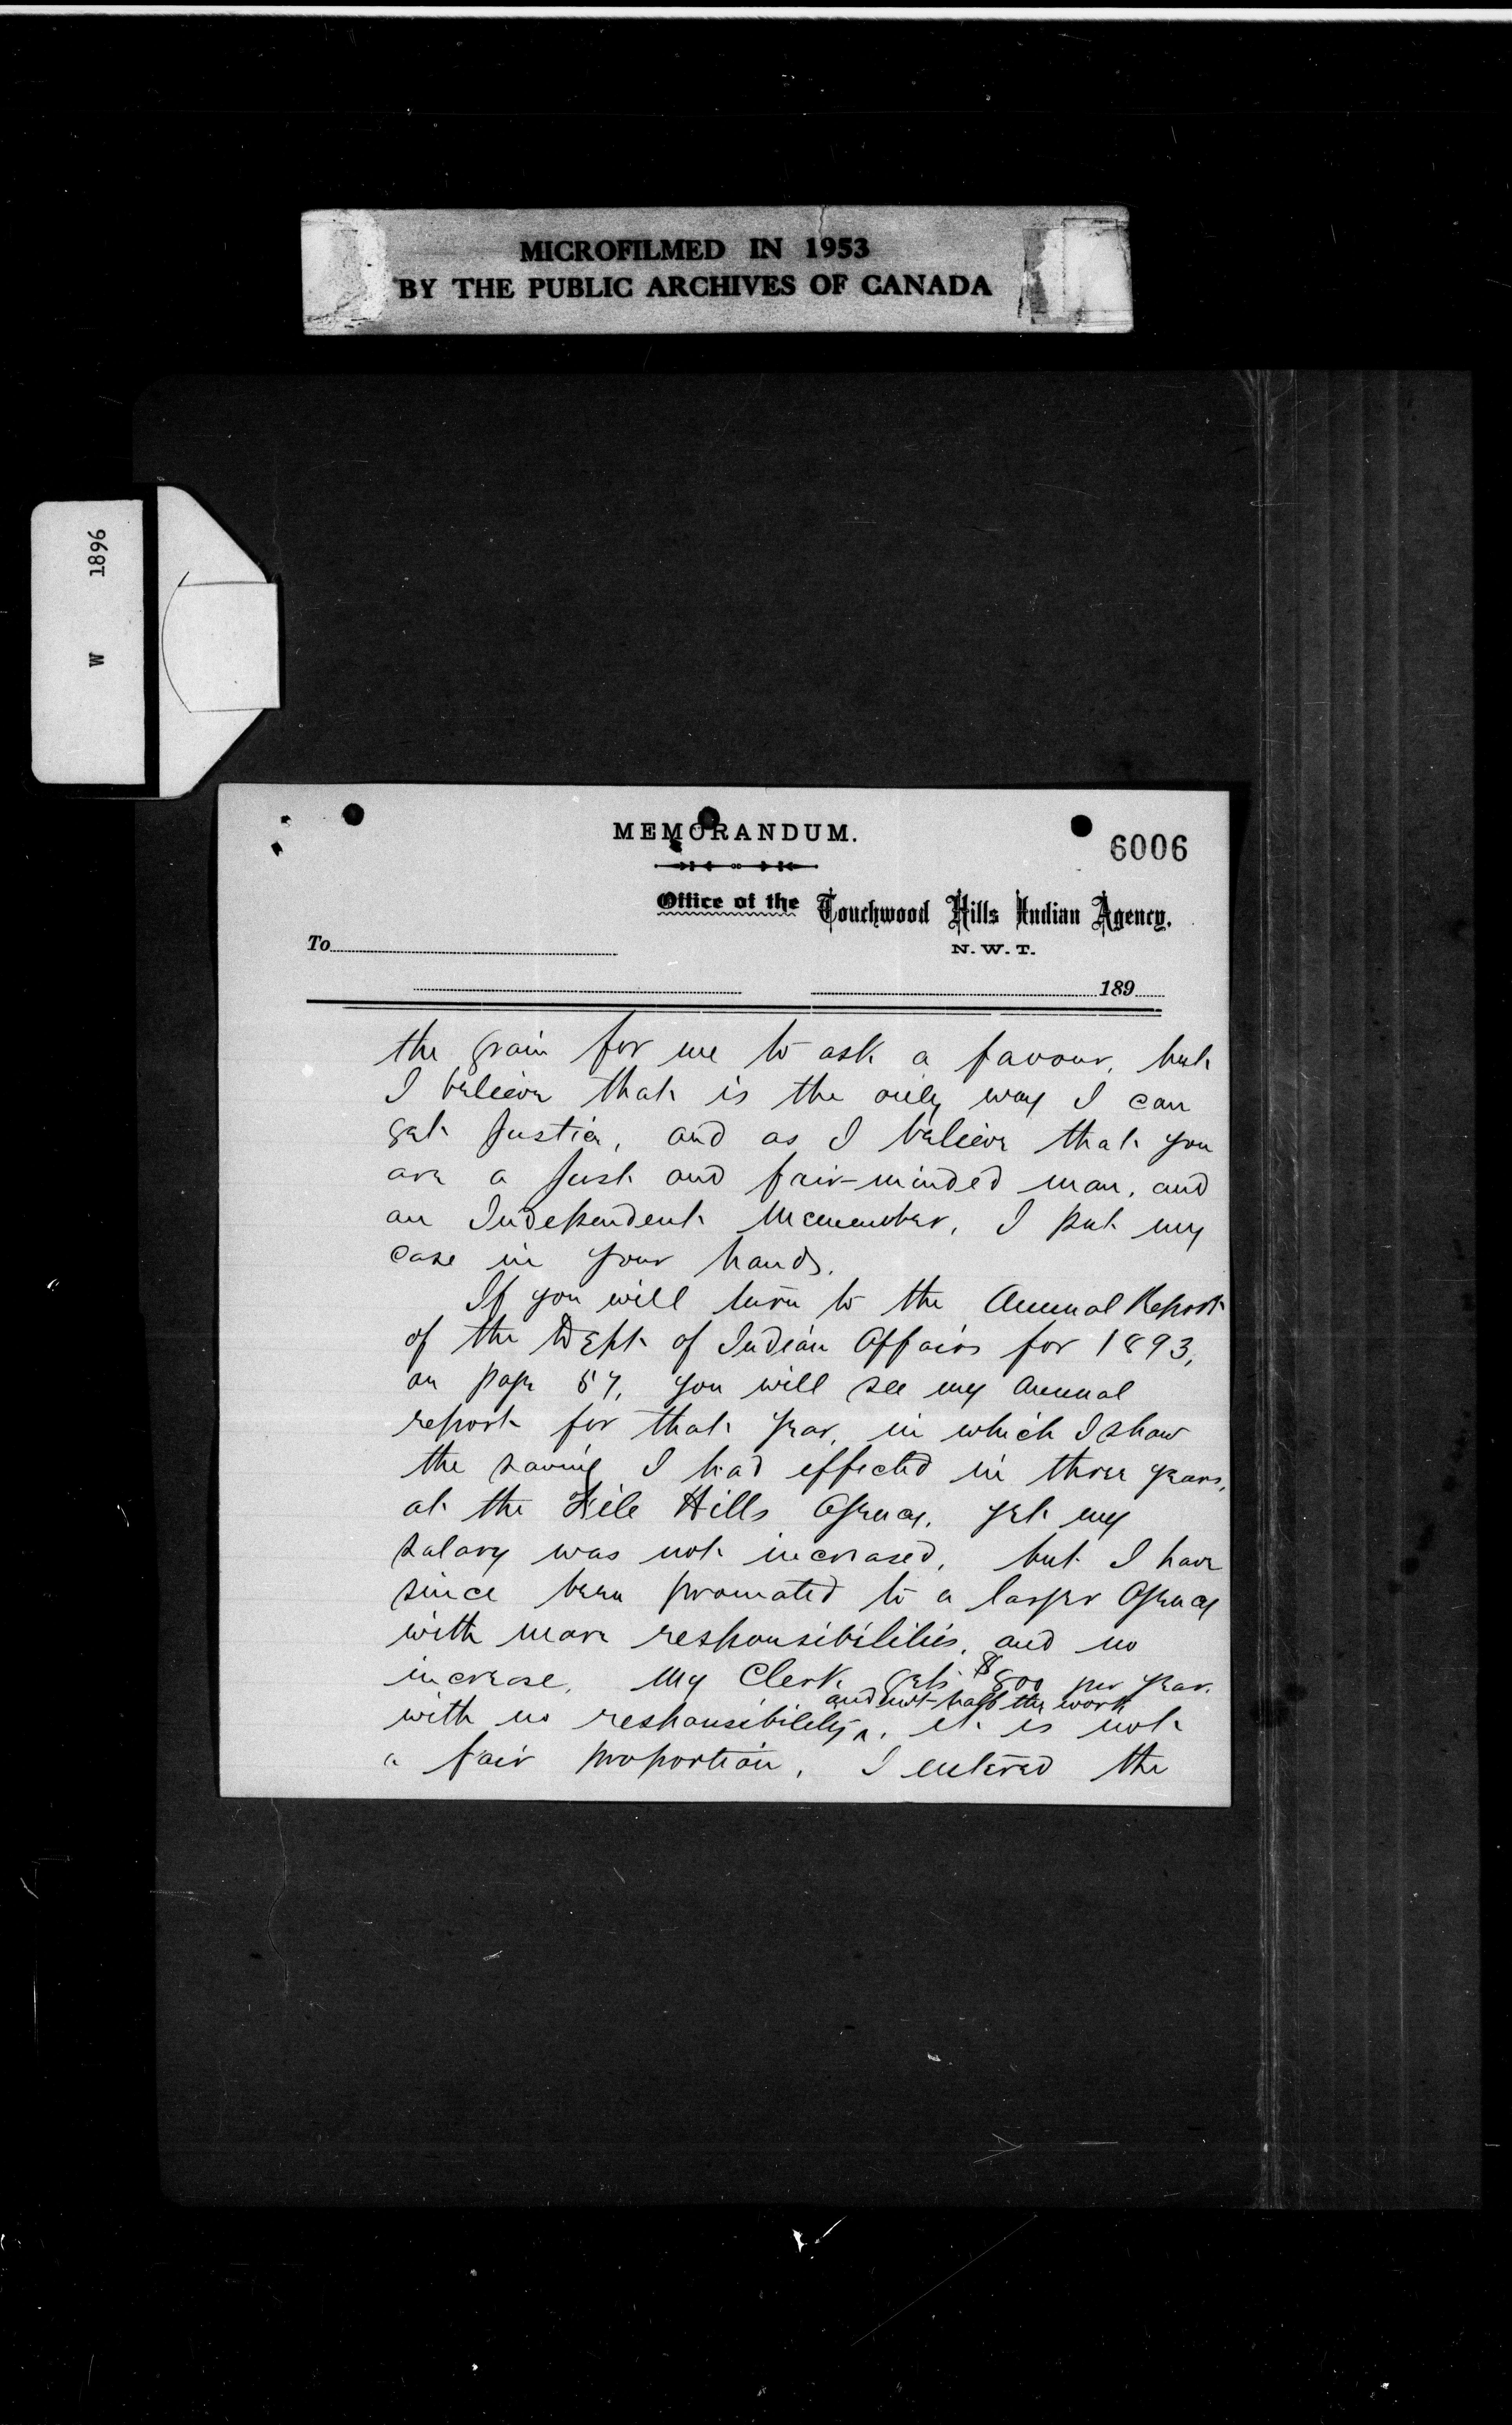 MICROFILMED IN 1953
BY THE PUBLIC ARCHIVES OF CANADA
W 1896
MEMORANDUM.
6006
Office of the Touchwood Hills Indian Agency.
N. W. T.
To
189
the grain for me to ask a favour, but
I believe that is the only way I can
get justice, and as I believe that you
are a just and fair-minded man, and
an Independent Memember, I put my
case in your hands.
If you will turn to the Annual Report
of the Dept of Indian Affairs for 1893,
on page 57, you will see my annual
report for that year, in which I show
the saving I had effected in three years,
at the File Hills Agency, yet my
salary was not increased, but I have
since been promoted to a larger Agency
with more responsibilities, and no
increase. My Clerk gets $800 per year.
and not half the work
with no responsibility ^. it is not
a fair proportion. I entered the